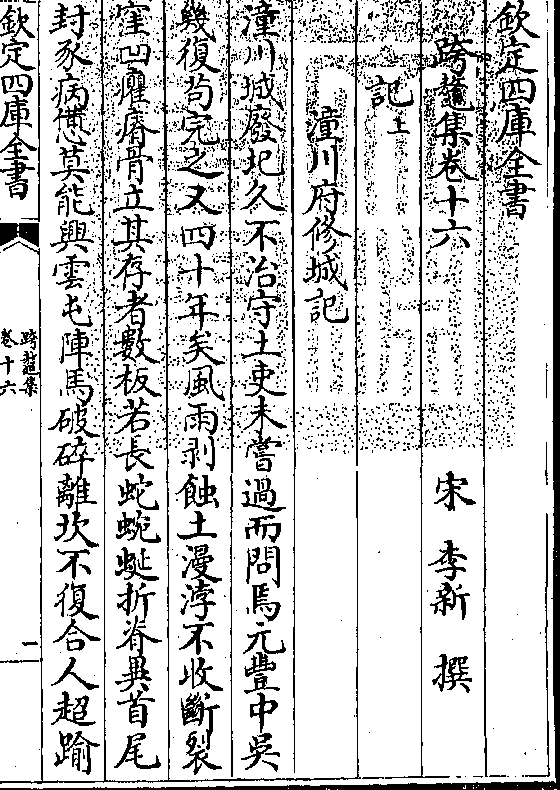 欽定四庫全書
跨鼇集卷十六
宋 李新 撰
記上
潼川府修城記
潼川城廢圮久不治守土吏未嘗過而問焉元豐中吳
幾復茍完之又四十年矣風雨剥蝕土漫浡不收斷裂
窪凹癯瘠骨立其存者數板若長蛇蜿蜒折脊異首尾
封豕病憊莫能興雲屯陣馬破碎離坎不復合人超踰
欽定四庫全書
跨鼇集
卷十六
一